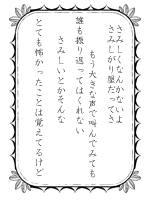 さみしくなんかないよ
さみしがり屋だってさ
もう大きな声で叫んでみても
誰も振り返ってはくれない
さみしいとかそんな
とても怖かったことは覚えてるけど